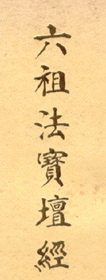 六祖法寶壇經